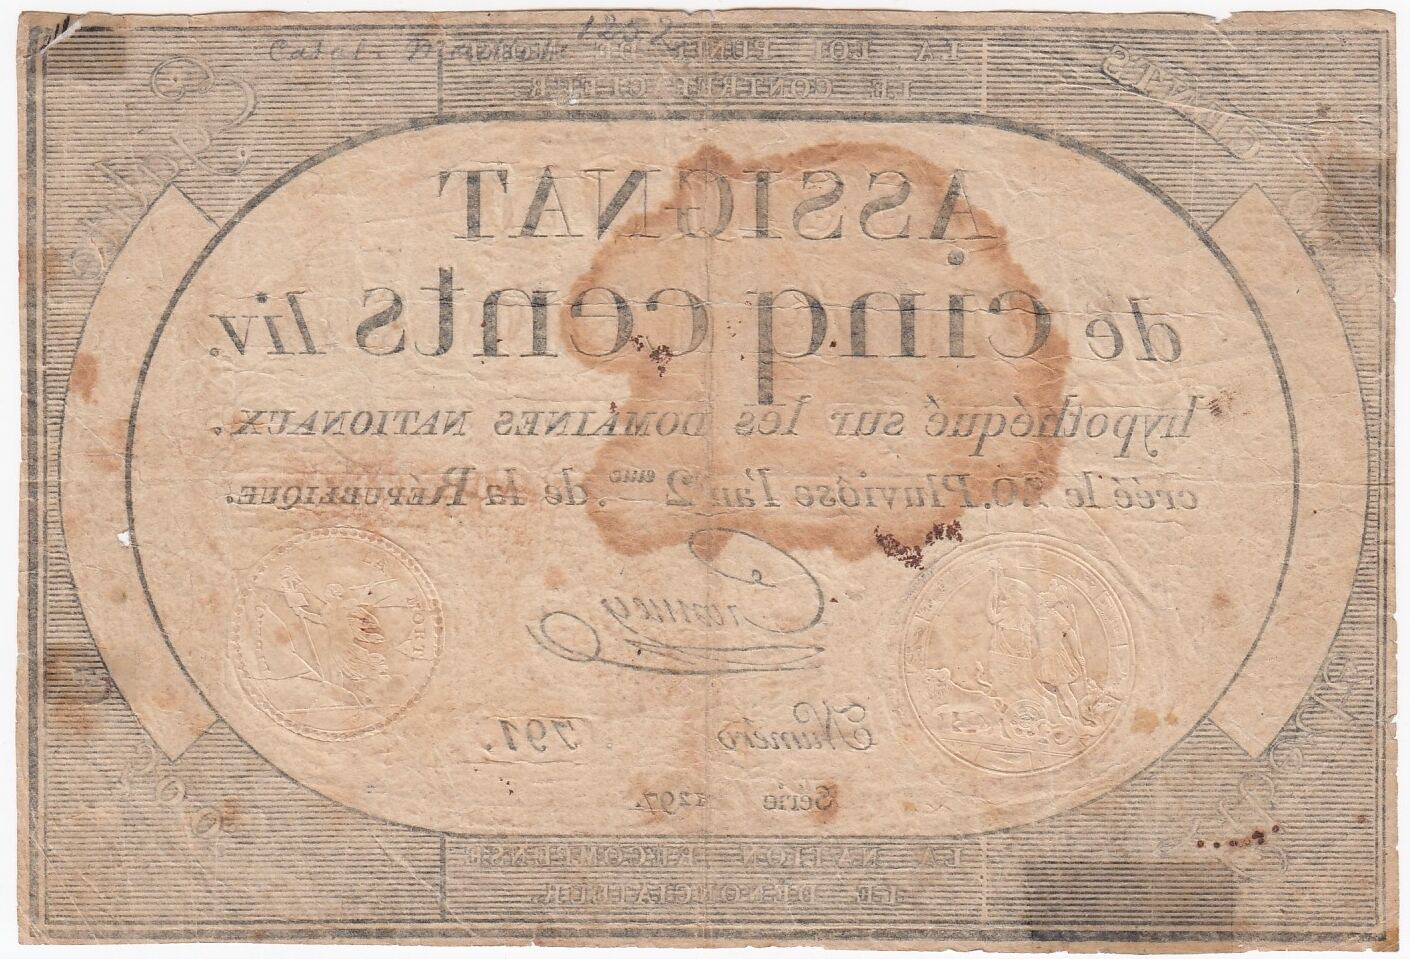 1252
LA LOI PUNIT DE MORT
LE CONTREFACTEUR.
ASSIGNAT
de cinq cents liv.
hypothéqué sur les DOMAINES NATIONAUX.
créé le 20. Pluviôse l'an 2.eme de la RÉPUBLIQUE.
LA
Numéro 791.
Série 1297.
LA NATION RÉCOMPENSE
LE DÉNONCIATEUR.